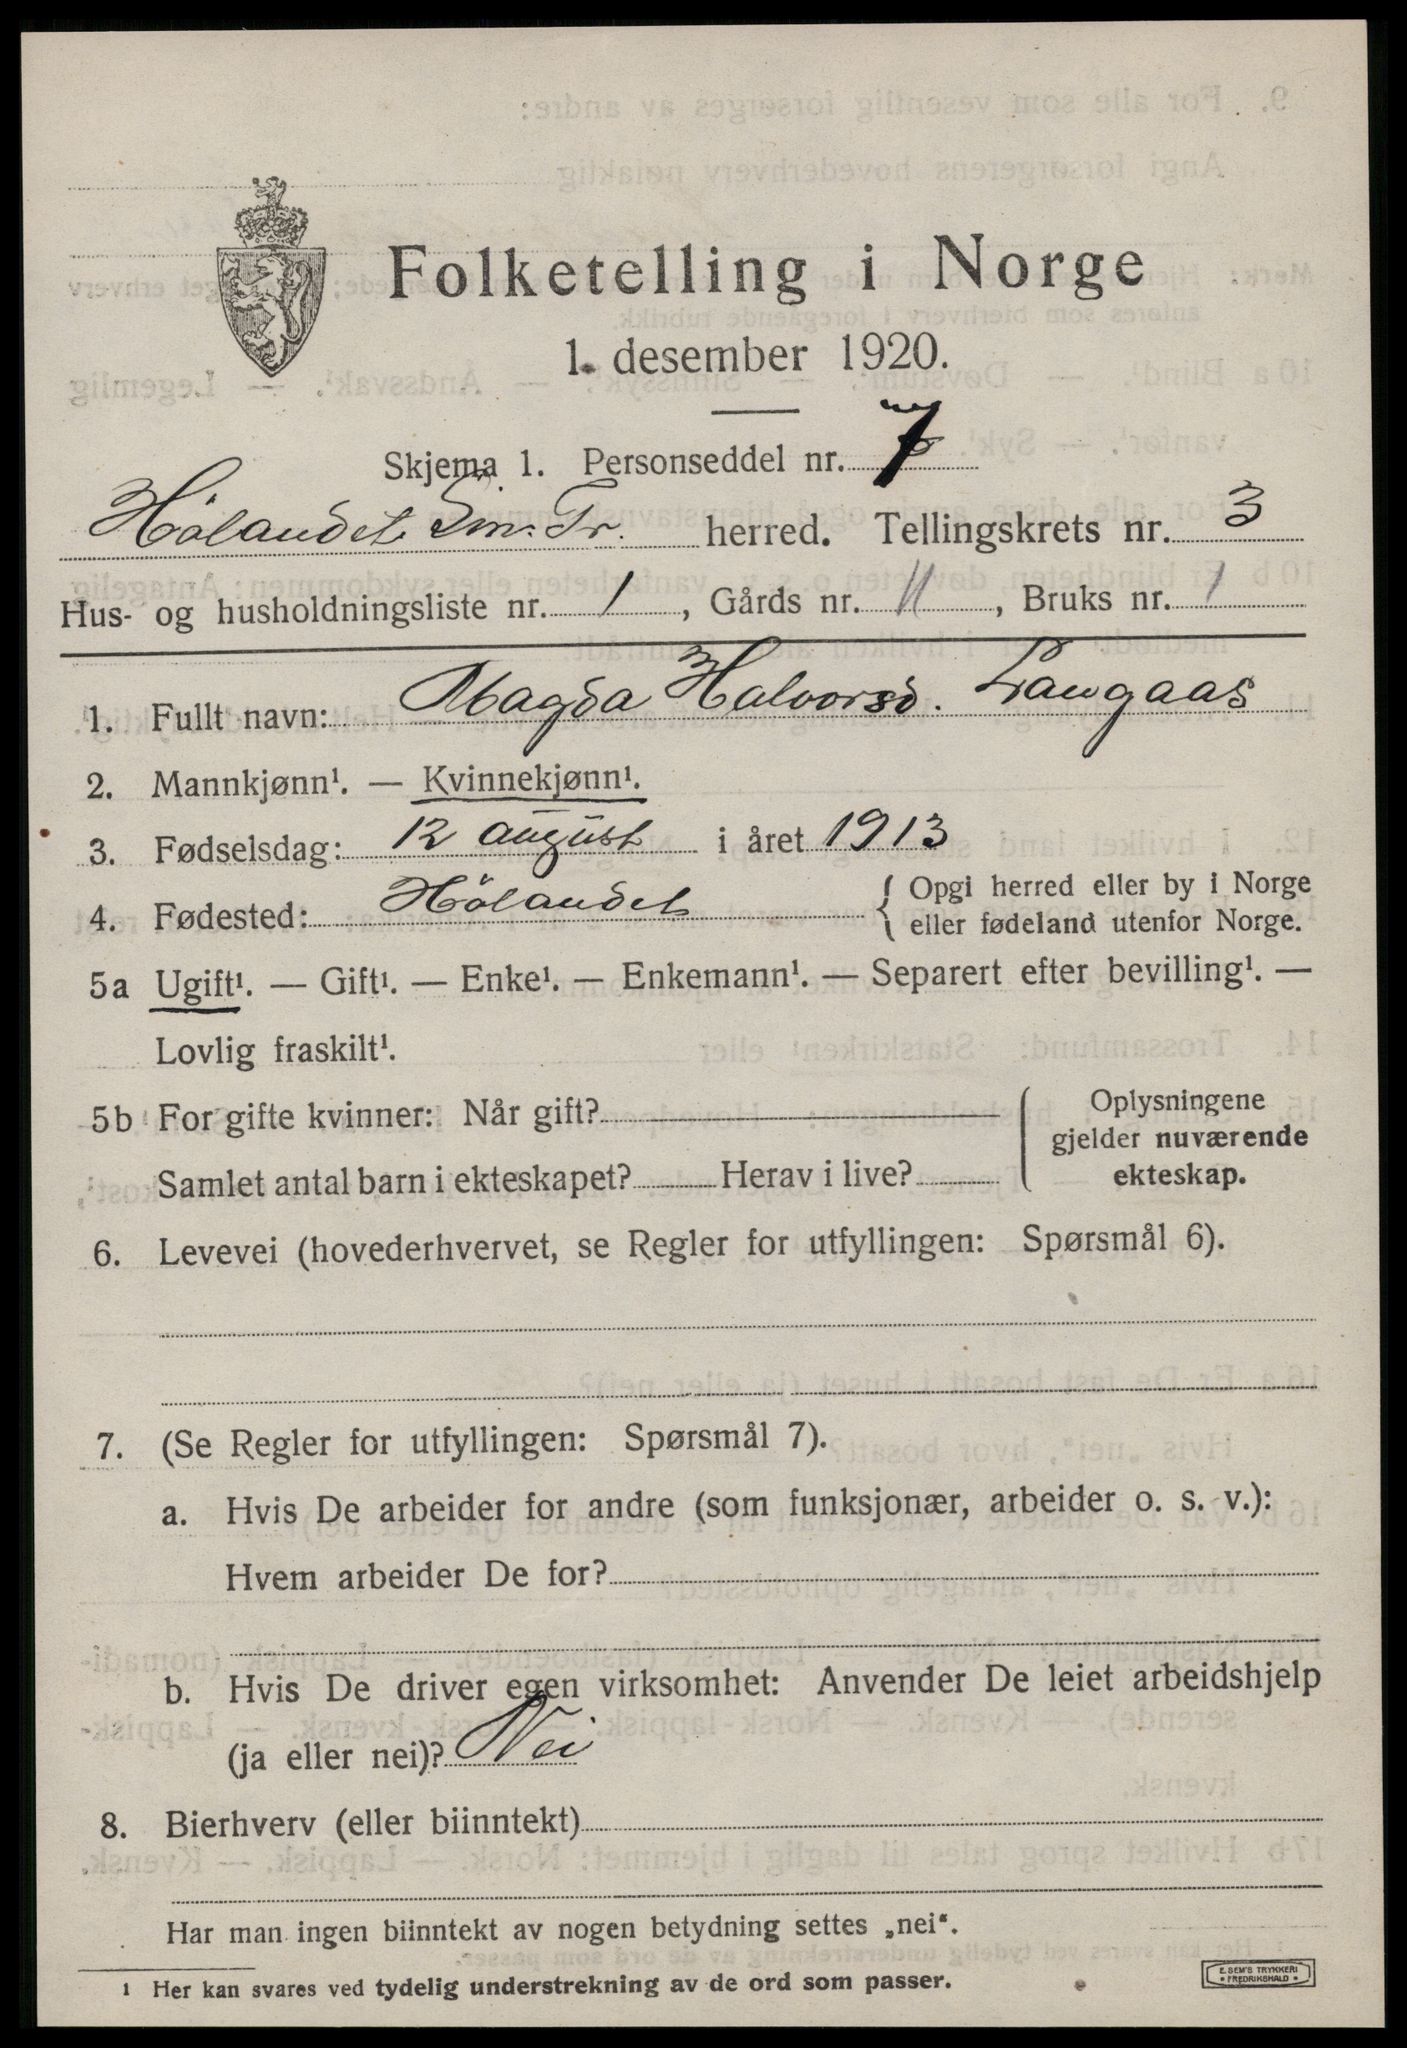 Folketelling i Norge
1. desember 1920.
Skjema 1. Personseddel nr. 7
Hölandet Sør-Tr. herred. Tellingskrets nr. 3
Hus- og husholdningsliste nr. 1, Gårds nr. 11, Bruks nr. 1
1. Fullt navn: Magda Halvorsd. Langaas
2. Mannkjønn¹. — Kvinnekjønn¹.
3. Fødselsdag: 12 august i året 1913
4. Fødested: Hölandet { Opgi herred eller by i Norge
eller fødeland utenfor Norge.
5a Ugift¹. — Gift¹. — Enke¹. — Enkemann¹. — Separert efter bevilling¹. —
Lovlig fraskilt¹.
5b For gifte kvinner: Når gift?
Samlet antal barn i ekteskapet? Herav i live?
Oplysningene
gjelder nuværende
ekteskap.
6. Levevei (hovederhvervet, se Regler for utfyllingen: Spørsmål 6).
7. (Se Regler for utfyllingen: Spørsmål 7).
a. Hvis De arbeider for andre (som funksjonær, arbeider o. s. v.):
Hvem arbeider De for?
b. Hvis De driver egen virksomhet: Anvender De leiet arbeidshjelp
(ja eller nei)? Nei
8. Bierhverv (eller biinntekt)
Har man ingen biinntekt av nogen betydning settes „nei“.
1 Her kan svares ved tydelig understrekning av de ord som passer.
E. SEM'S TRYKKERI
FREDRIKSHALD